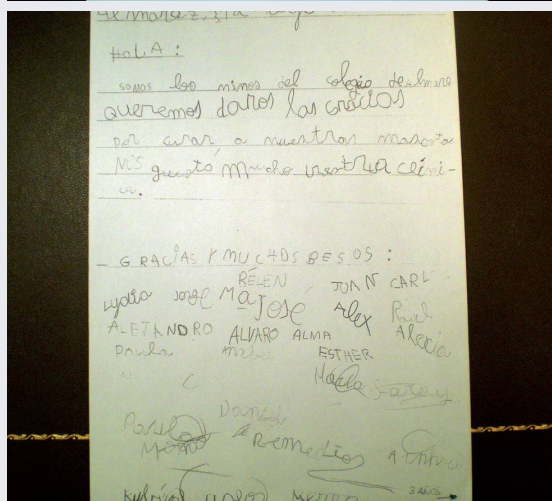 Almaraz,
HOLA :
somos los niños del colegio de Almara
queremos daros las gracias
por curar a nuestras mascota
NOS gustó mucho vuestra clíni-
ca.
- GRACIAS Y MUCHOS BESOS :
BELEN JUAN CARL
Lydia Jorge Mª JOSE Alex Raúl
ALEJANDRO ALVARO ALMA Alexia
Paula ESTHER
Saray
Paula Daniel
Remedios Ainhoa
3 AÑOS